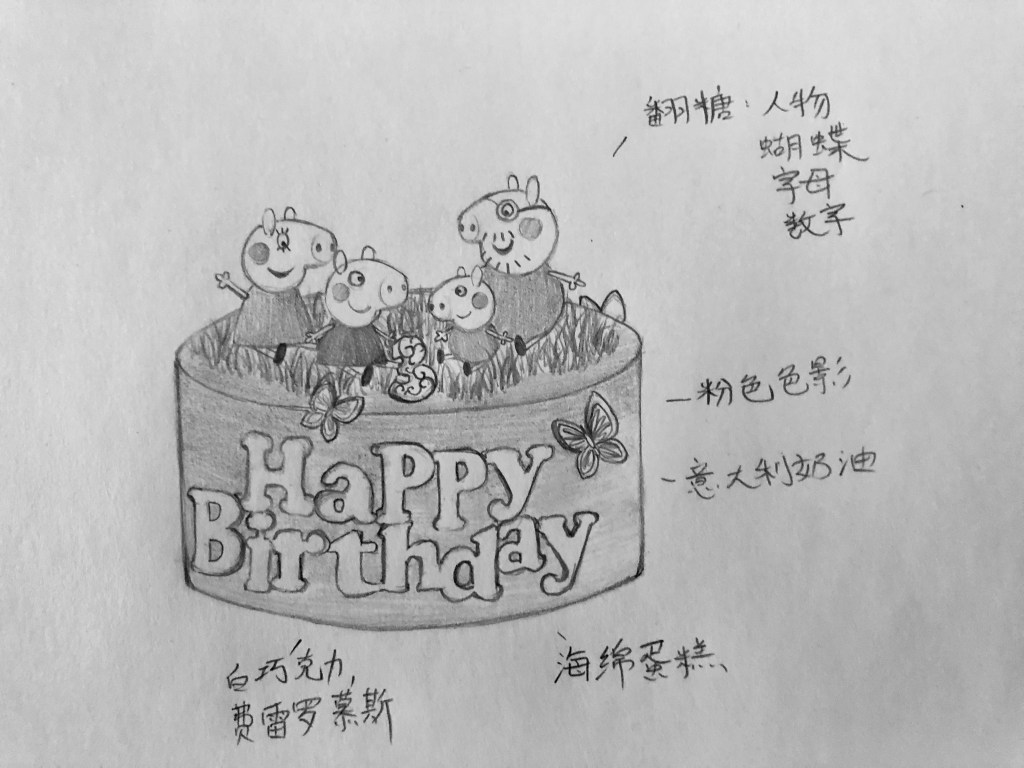 翻糖：人物
蝴蝶
字母
数字
3
粉色色影
意大利奶油
Happy
Birthday
白巧克力,
费雷罗慕斯
海绵蛋糕